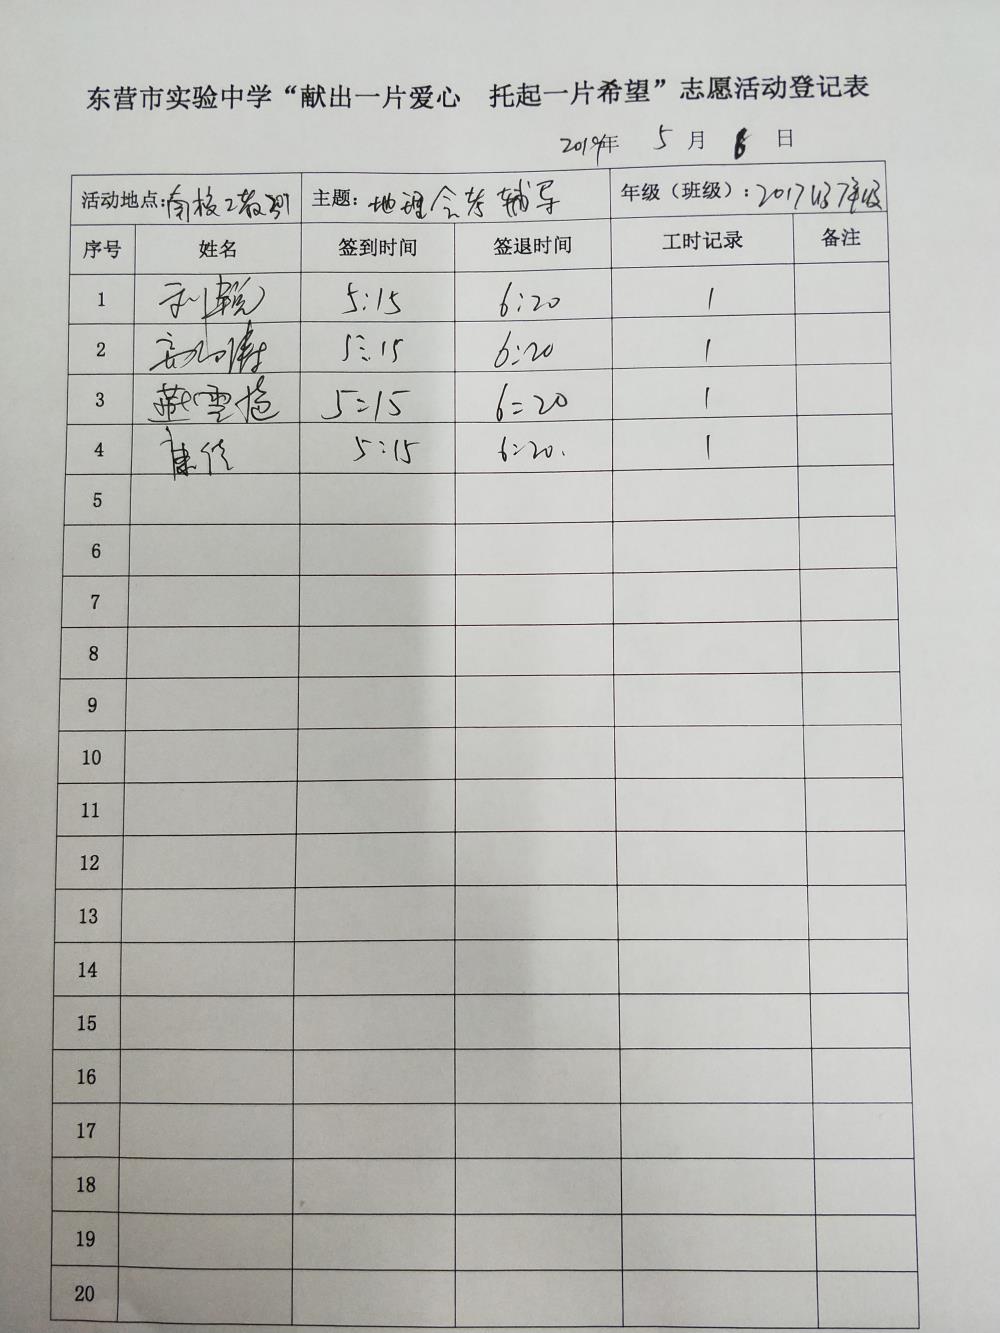 东营市实验中学“献出一片爱心 托起一片希望”志愿活动登记表
2019年 5 月 日
活动地点: 南校2教 主题: 地理会考辅导 年级（班级）: 2017级
序号 姓名 签到时间 签退时间 工时记录 备注
1 5:15 6:20 1
2 5:15 6:20 1
3 5:15 6:20 1
4 康佳 5:15 6:20. 1
5
6
7
8
9
10
11
12
13
14
15
16
17
18
19
20